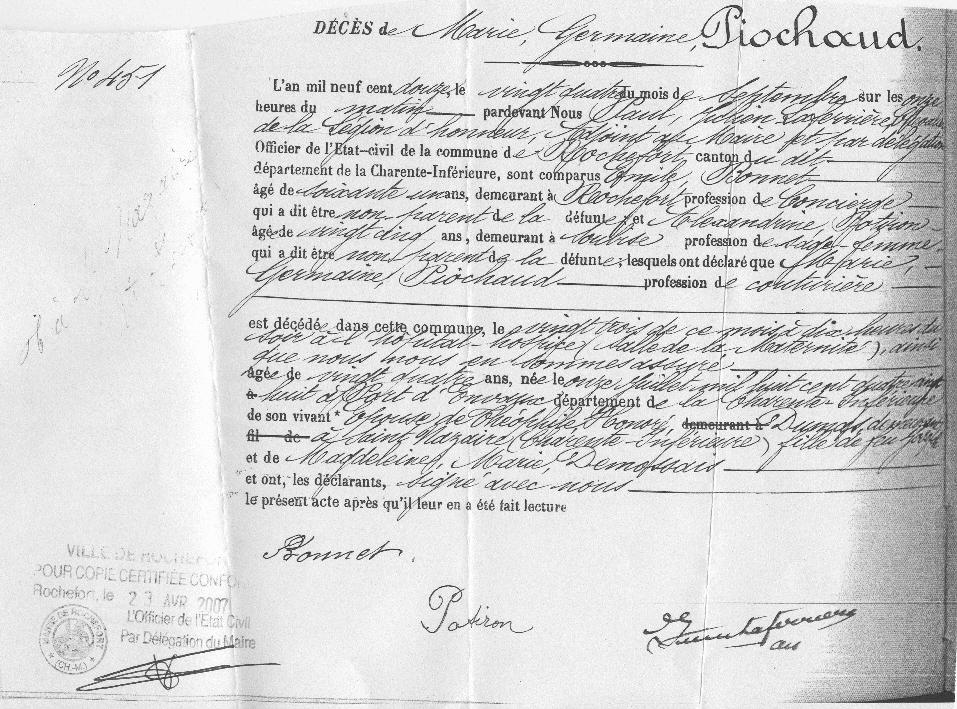 DÉCÈS de Marie, Germaine, Piochaud.
N° 451
L'an mil neuf cent douze, le vingt quatre du mois de Septembre sur les onze
heures du matin pardevant Nous Paul, Julien Laferrière, Officier
de la Légion d'honneur, Adjoint au Maire et par délégation
Officier de l'Etat-civil de la commune de Rochefort, canton du dit
département de la Charente-Inférieure, sont comparus Emile, Bonnet
âgé de soixante un ans, demeurant à Rochefort profession de Concierge
qui a dit être non parent de la défunte, et Alexandrine, Potiron
âgée de vingt cinq ans, demeurant à profession de sage-femme
qui a dit être non parent de la défunte; lesquels ont déclaré que Marie,
Germaine, Piochaud profession de couturière
est décédée dans cette commune, le vingt trois de ce mois à dix heures du
soir à l'hôpital-hospice (salle de la Maternité), ainsi
que nous nous en sommes assuré
âgée de vingt quatre ans, née le onze Juillet mil huit cent quatre vingt
huit à Port d'Envaux département de la Charente-Inférieure
de son vivant Epouse de Théophile, Honoré, demeurant à Dumas,
fil de à Saint Nazaire (Charente-Inférieure) fille de feu
et de Magdeleine, Marie, Demossais
et ont, les déclarants, signé avec nous
le présent acte après qu'il leur en a été fait lecture
Bonnet.
Potiron
VILLE DE ROCHEFORT
POUR COPIE CERTIFIÉE CONFORME
Rochefort, le 23 AVR 2007
L'Officier de l'Etat Civil
Par Délégation du Maire
MAIRIE DE ROCHEFORT
(CH-M)